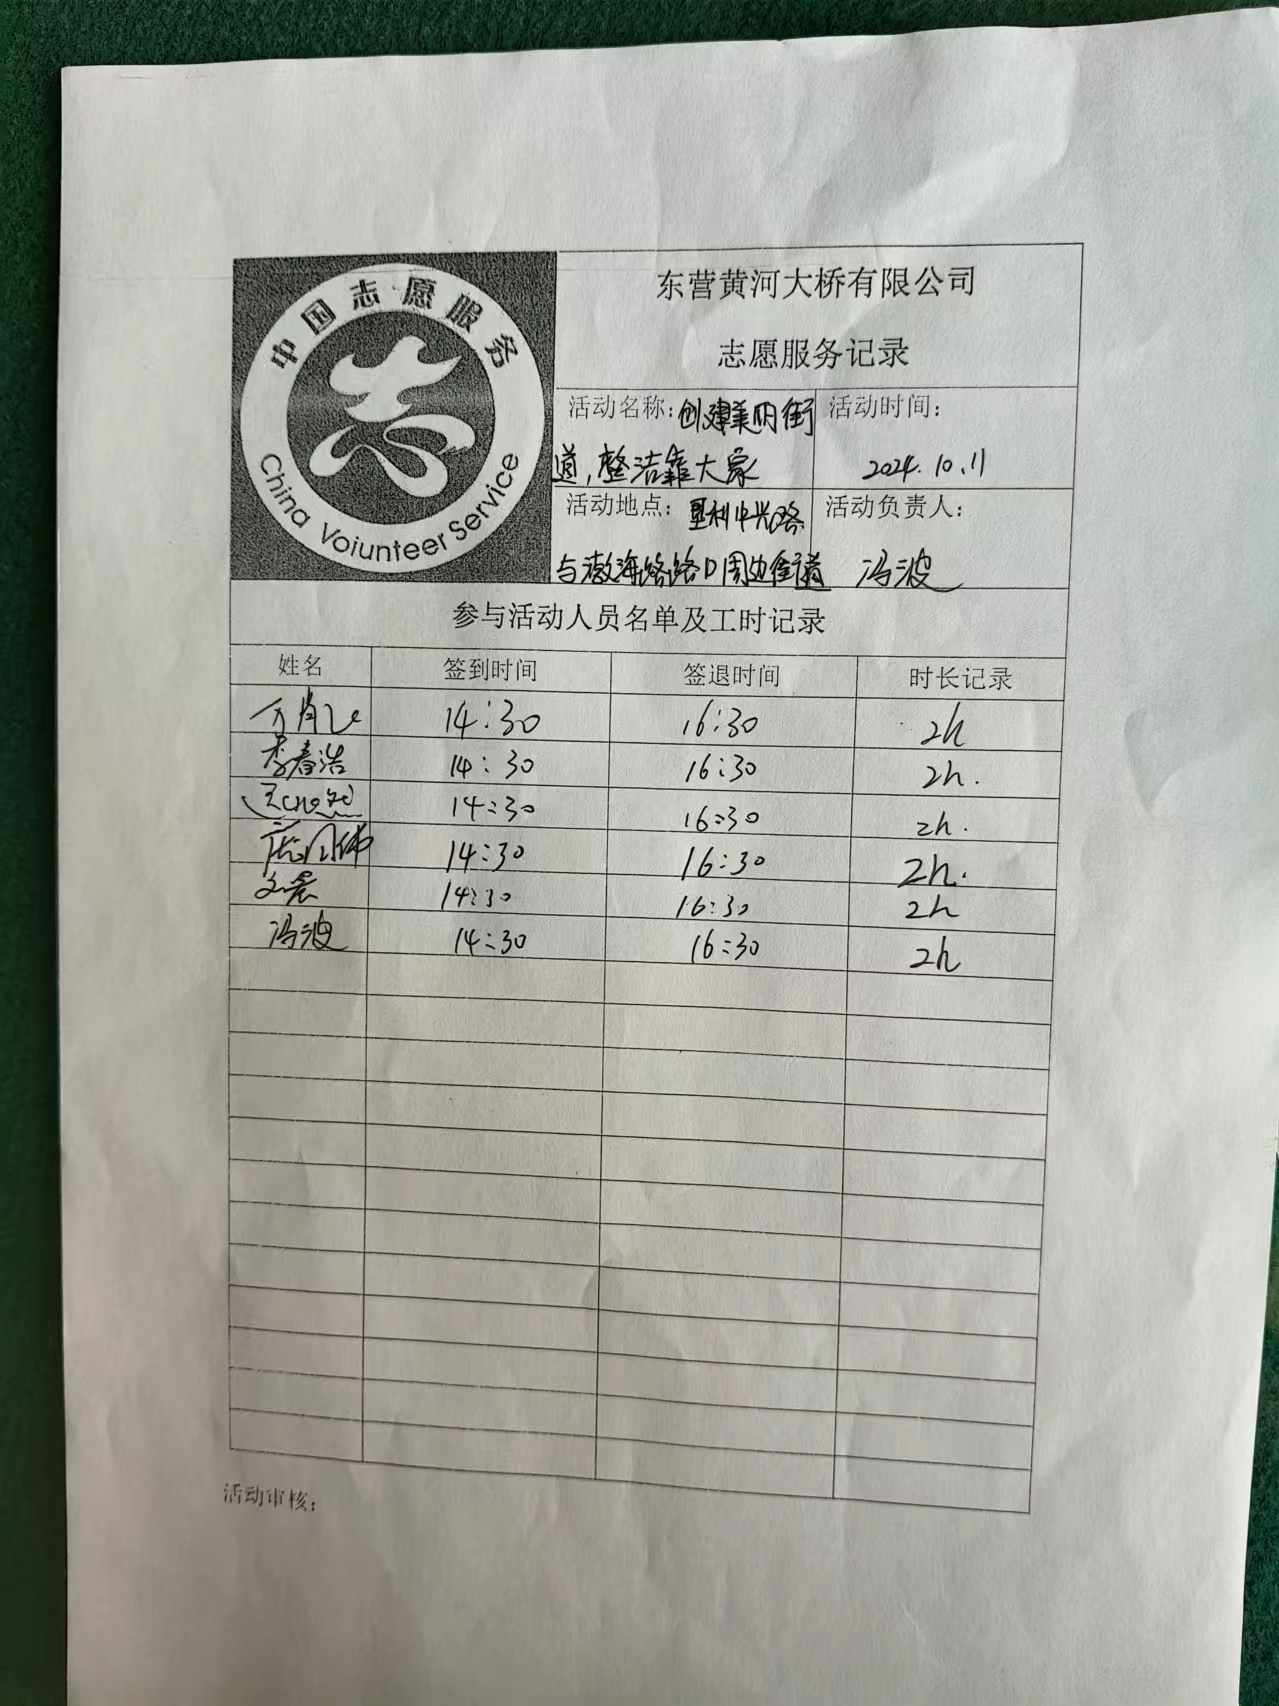 中国志愿服务
志
China Voiunteer Service
东营黄河大桥有限公司
志愿服务记录
活动名称：创建美丽街
道，整洁靠大家
活动时间：
2024.10.11
活动地点：垦利中兴路
与渤海路路口周边街道
活动负责人：
冯波
参与活动人员名单及工时记录
姓名 签到时间 签退时间 时长记录
14:30 16:30 2h
李春浩 14:30 16:30 2h.
14:30 16:30 2h.
14:30 16:30 2h.
14:30 16:30 2h
冯波 14:30 16:30 2h
活动审核：